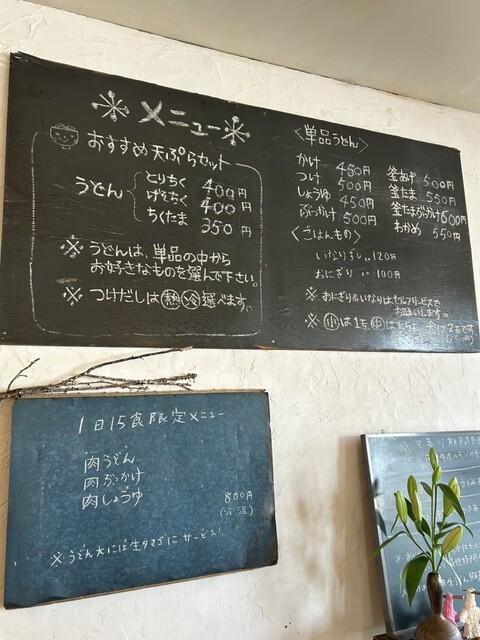 ※ メニュー ※
おすすめ天ぷらセット
うどん
とりちく 400円
げそちく 400円
ちくたま 350円
※ うどんは、単品の中から
お好きなものを選んで下さい。
※ つけだしは熱冷選べます。
〈単品うどん〉
かけ 450円
つけ 500円
しょうゆ 450円
ぶっかけ 500円
釜あげ 500円
釜たま 550円
釜たまぶっかけ 600円
わかめ 550円
〈ごはんもの〉
いなりずし 120円
おにぎり 100円
※ おにぎり&いなりは、セルフサービスで
お願いします。
※ 小は1玉 中は 大は2玉です
1日15食限定メニュー
肉うどん
肉ぶっかけ
肉しょうゆ
800円
※ うどん大には生タマゴにサービス!